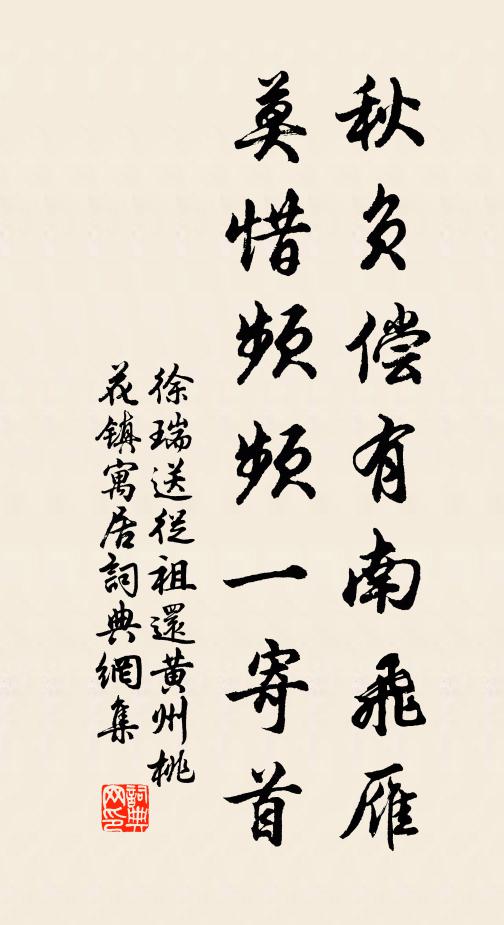 秋负偿有南飛雁
莫惜頻頻一寄首
徐瑞送從祖還黄州桃
花鎮寓居詞典網集
詞典
网印